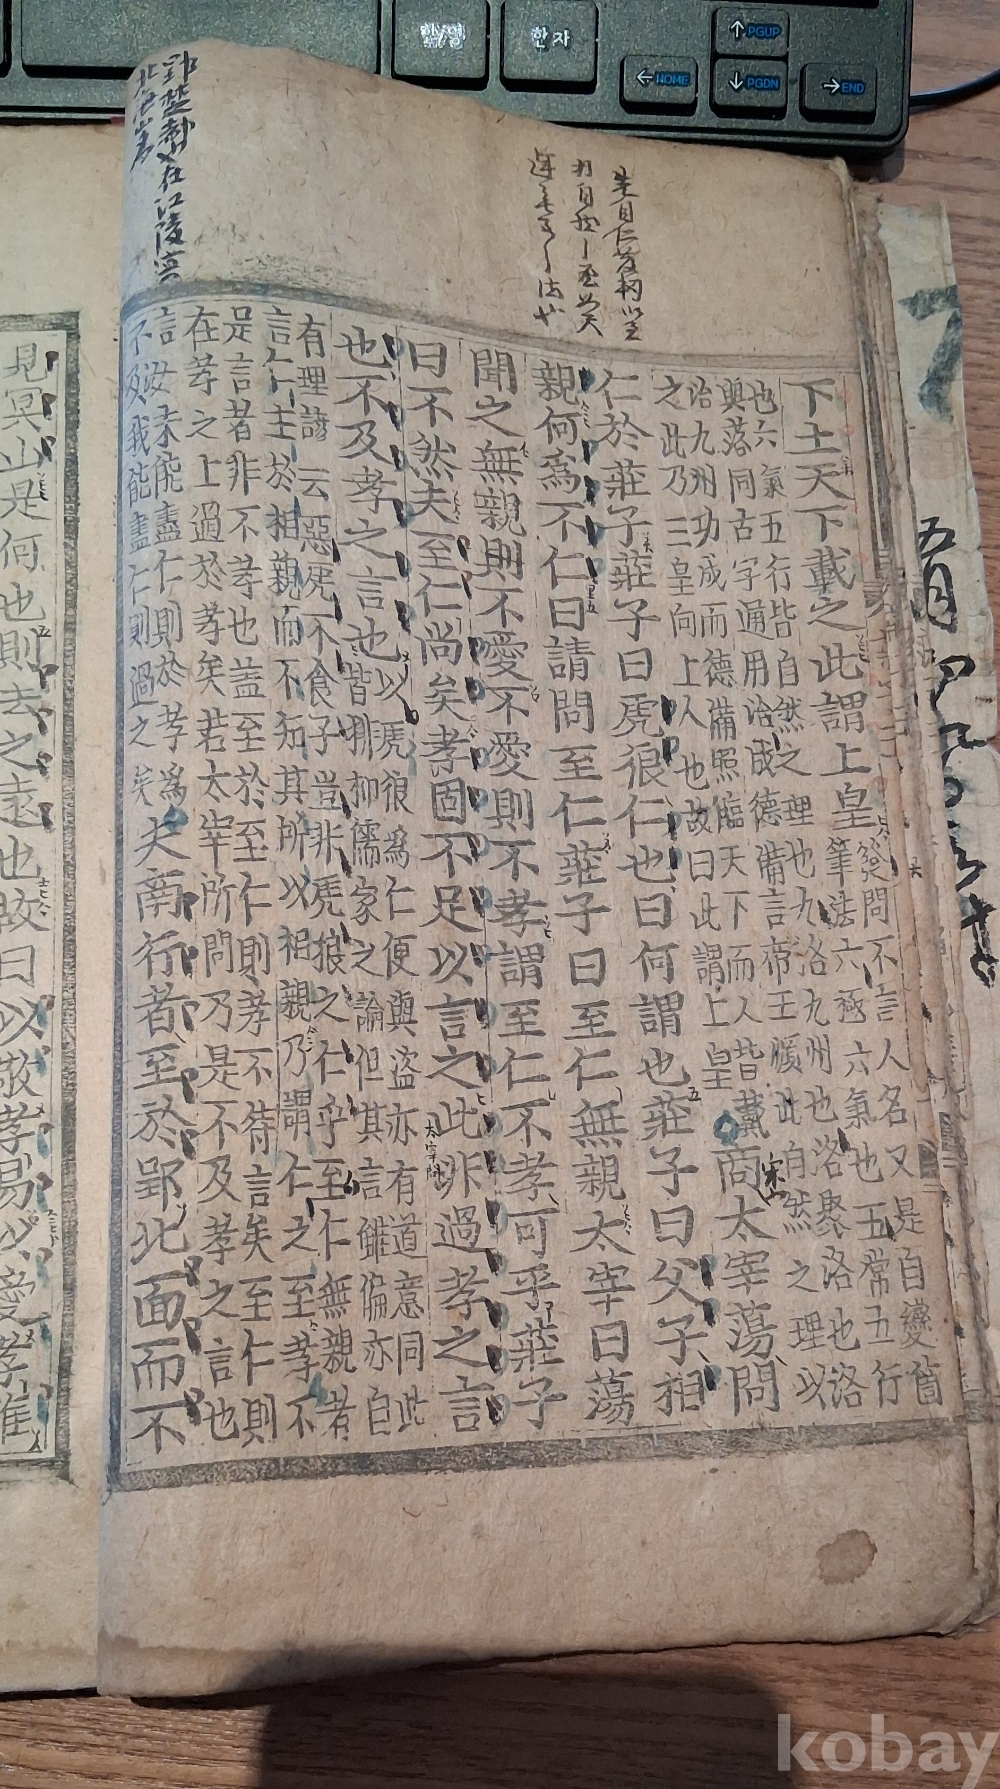 한/영
한자
PGUP
HOME
PGDN
END
郢楚都在江陵
北海山名
下土天下載之此謂上皇
發問不言人名又是自變箇
筆法六極六氣也五常五行
也六氣五行皆自然之理也九洛九州也洛聚洛也洛
與落同古字通用治成德備言帝王順此自然之理以
治九州功成而德備照臨天下而人皆戴
之此乃三皇向上人也故曰此謂上皇
商太宰蕩問
仁於莊子莊子曰虎狼仁也曰何謂也莊子曰父子相
親何爲不仁曰請問至仁莊子曰至仁無親太宰曰蕩
聞之無親則不愛不愛則不孝謂至仁不孝可乎莊子
曰不然夫至仁尚矣孝固不足以言之此非過孝之言
也不及孝之言也
以虎狼爲仁便與盜亦有道意同此
皆排抑儒家之論但其言雖偏亦自
有理諺云惡虎不食子豈非虎狼之仁乎至仁無親者
言仁主於相親而不知其所以相親乃謂仁之至孝不
足言者非不孝也蓋至於至仁則孝不待言矣至仁則
在孝之上過於孝矣若太宰所問乃是不及孝之言也
言汝未能盡仁則於孝爲
不及我能盡仁則過之矣
夫南行者至於郢北面而不
見冥山是何也則去之遠也故曰以敬孝易以愛孝難
kobay